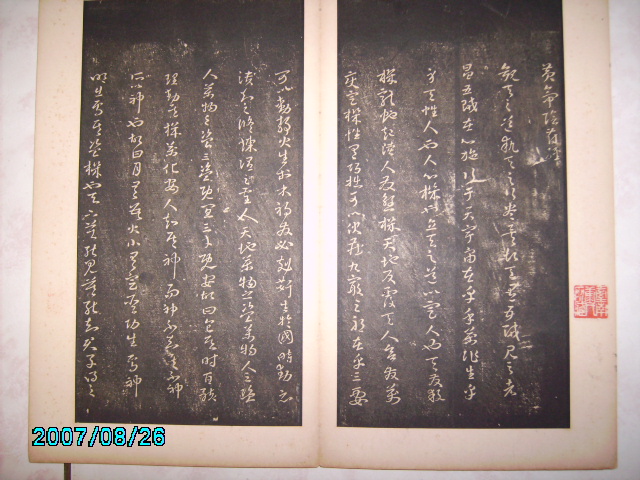 黃帝陰符經
觀天之道執天之行盡矣故天有五賊見之者
昌五賊在心施行于天宇宙在乎手萬化生乎
身天性人也人心機也立天之道以定人也天發殺
機龍蛇起陸人發殺機天地反覆天人合發萬
變定機性有巧拙可以伏藏九竅之邪在乎三要
可以動靜火生於木禍發必剋奸生於國時動必
潰知之修煉謂之聖人天地萬物之盜萬物人之盜
人萬物之盜三盜既宜三才既安故曰食其時百骸
理動其機萬化安人知其神而神不知其不神
所以神也故曰月有數大小有定聖功生焉神
明出焉其盜機也天下莫能見莫能知君子得之
2007/08/26